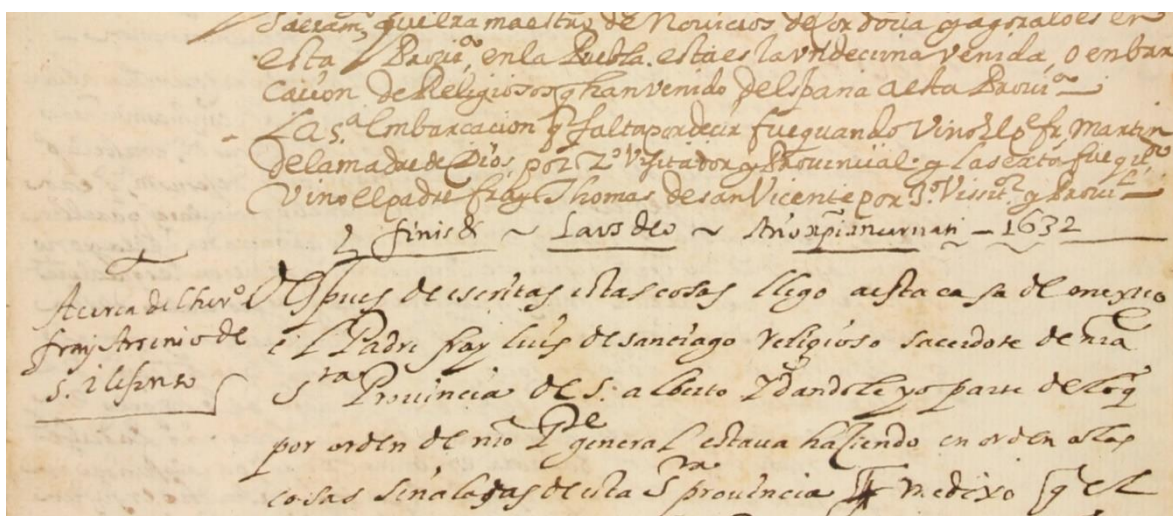 Sacram^to, que era maestro de Novicios de Cordova y agora lo es en
esta Provi^a, en la Puebla. esta es la undecima venida, o embar
cacion de Religiosos q han venido de España a esta Provi^a
La 5^a Embarcacion q falta por decir fue quando vino El p^e fr. Martin
de la madre de Dios, por 2^o Visitador y Provinçial. y La sexta fue q^do
Vino el padre fray Thomas de san Vicente por 3^o Vissit^or y Provi^l
finis ~ Laus deo ~ Año xpi incarnati - 1632
Acerca del her^o
fray Arsenio de
S. Ilefonso
Despues de escritas estas cosas llego a esta casa de mexico
el Padre fray luis de santiago religioso sacerdote de nra
S^ta Provincia de S. alberto Y dandole yo parte de lo q
por orden de nro P^e general estava haziendo en orden a las
cosas señaladas de esta S^ta provincia me dixo q el